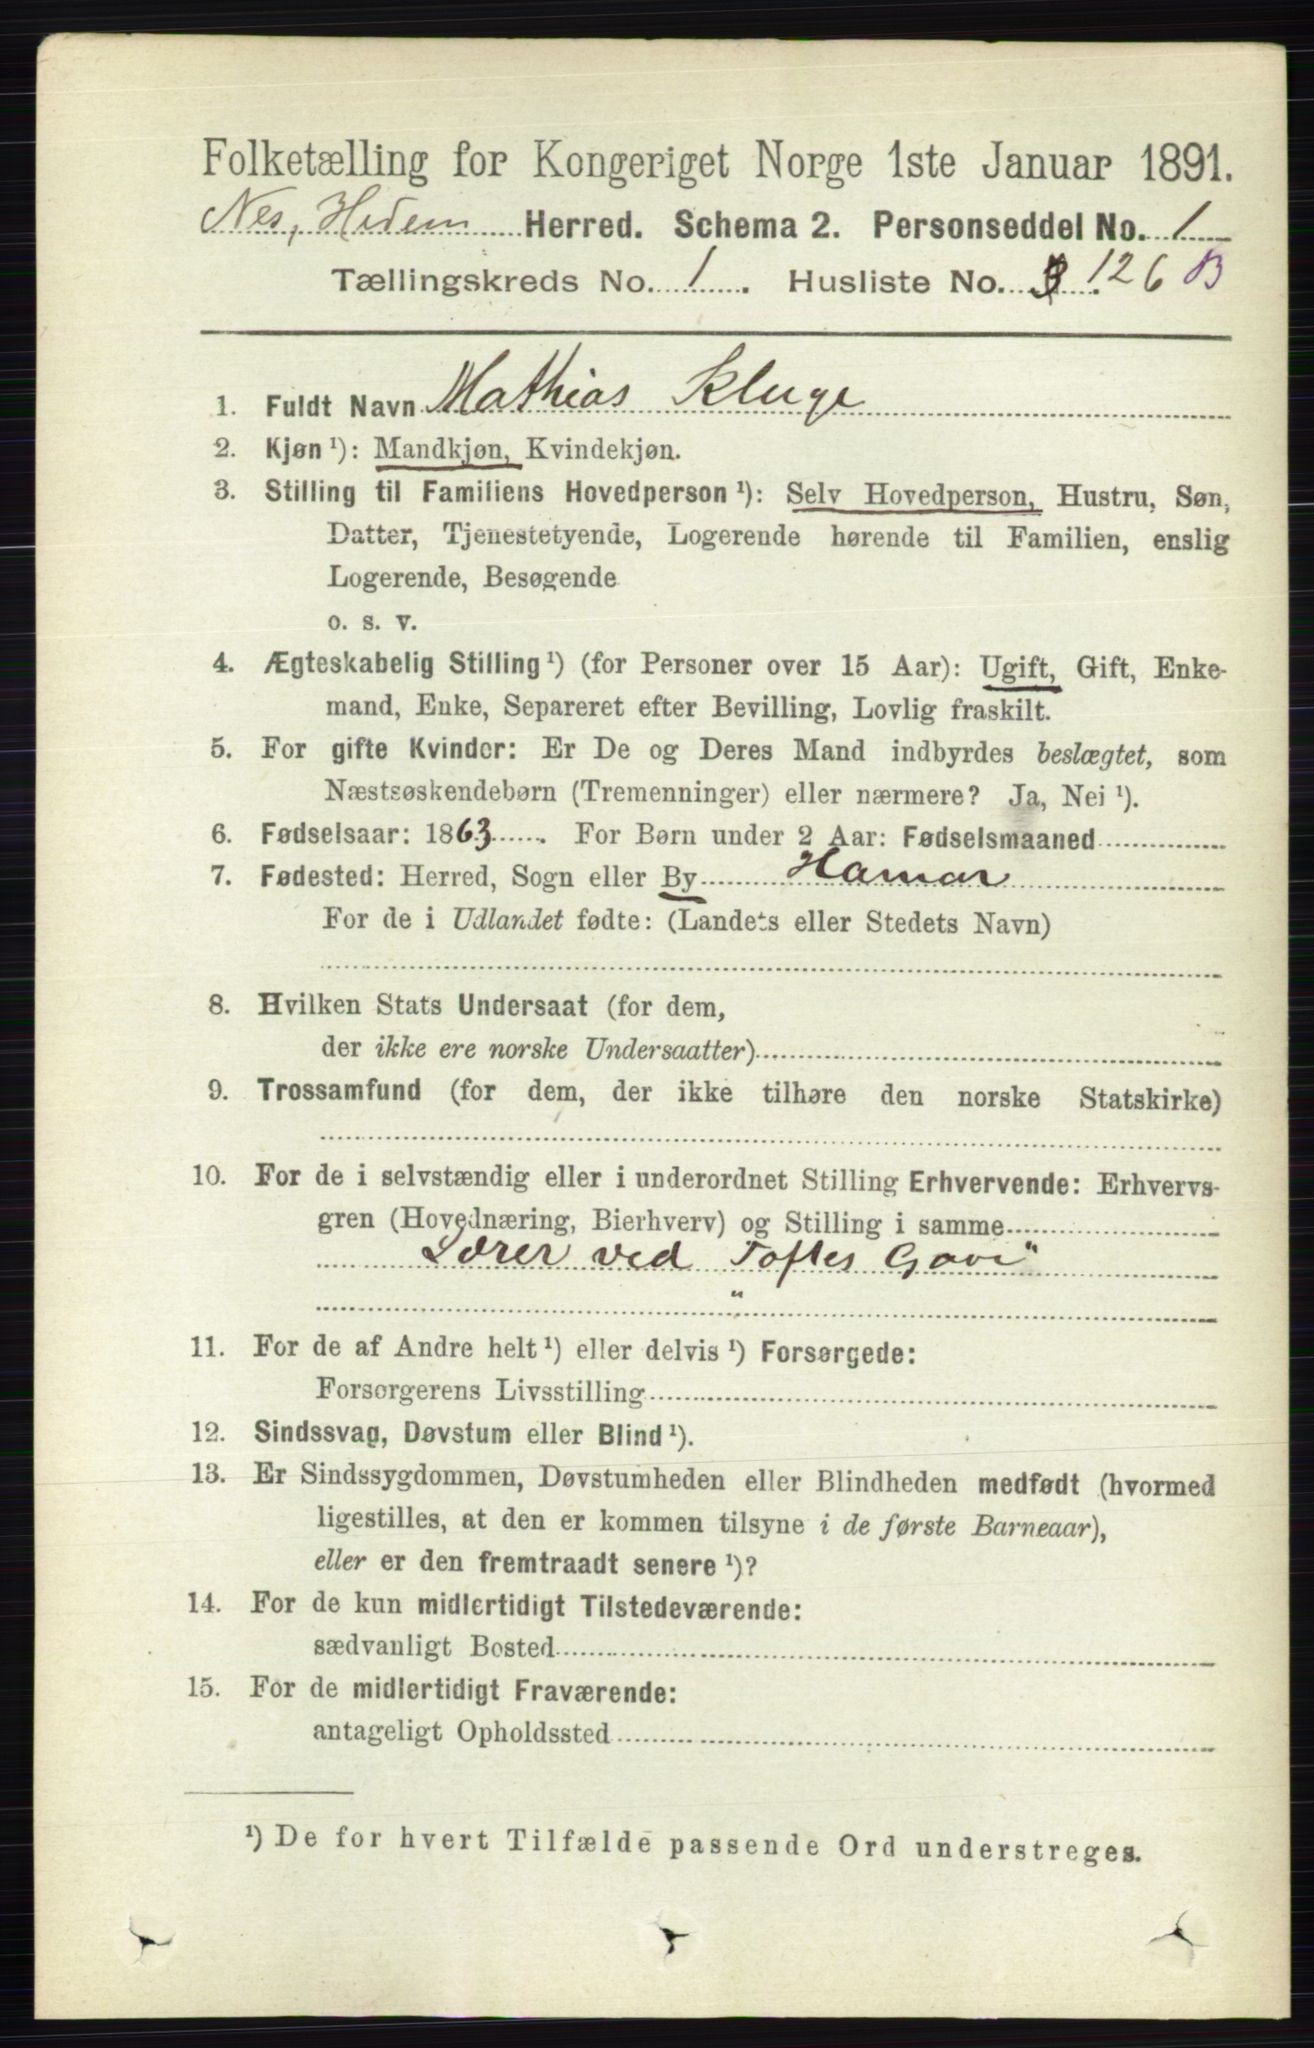 Folketælling for Kongeriget Norge 1ste Januar 1891.
Nes, Hedem Herred. Schema 2. Personseddel No. 1
Tællingskreds No. 1. Husliste No. 126 B
1. Fuldt Navn Mathias Kluge
2. Kjøn ¹): Mandkjøn, Kvindekjøn.
3. Stilling til Familiens Hovedperson ¹): Selv Hovedperson, Hustru, Søn,
Datter, Tjenestetyende, Logerende hørende til Familien, enslig
Logerende, Besøgende
o. s. v.
4. Ægteskabelig Stilling ¹) (for Personer over 15 Aar): Ugift, Gift, Enke-
mand, Enke, Separeret efter Bevilling, Lovlig fraskilt.
5. For gifte Kvinder: Er De og Deres Mand indbyrdes beslægtet, som
Næstsøskendebørn (Tremenninger) eller nærmere? Ja, Nei ¹).
6. Fødselsaar: 1863. For Børn under 2 Aar: Fødselsmaaned
7. Fødested: Herred, Sogn eller By Hamar
For de i Udlandet fødte: (Landets eller Stedets Navn)
8. Hvilken Stats Undersaat (for dem,
der ikke ere norske Undersaatter)
9. Trossamfund (for dem, der ikke tilhøre den norske Statskirke)
10. For de i selvstændig eller i underordnet Stilling Erhvervende: Erhvervs-
gren (Hovednæring, Bierhverv) og Stilling i samme
Lærer ved "Toftes Gave"
11. For de af Andre helt ¹) eller delvis ¹) Forsørgede:
Forsørgerens Livsstilling
12. Sindssvag, Døvstum eller Blind ¹).
13. Er Sindssygdommen, Døvstumheden eller Blindheden medfødt (hvormed
ligestilles, at den er kommen tilsyne i de første Barneaar),
eller er den fremtraadt senere ¹)?
14. For de kun midlertidigt Tilstedeværende:
sædvanligt Bosted
15. For de midlertidigt Fraværende:
antageligt Opholdssted
¹) De for hvert Tilfælde passende Ord understreges.